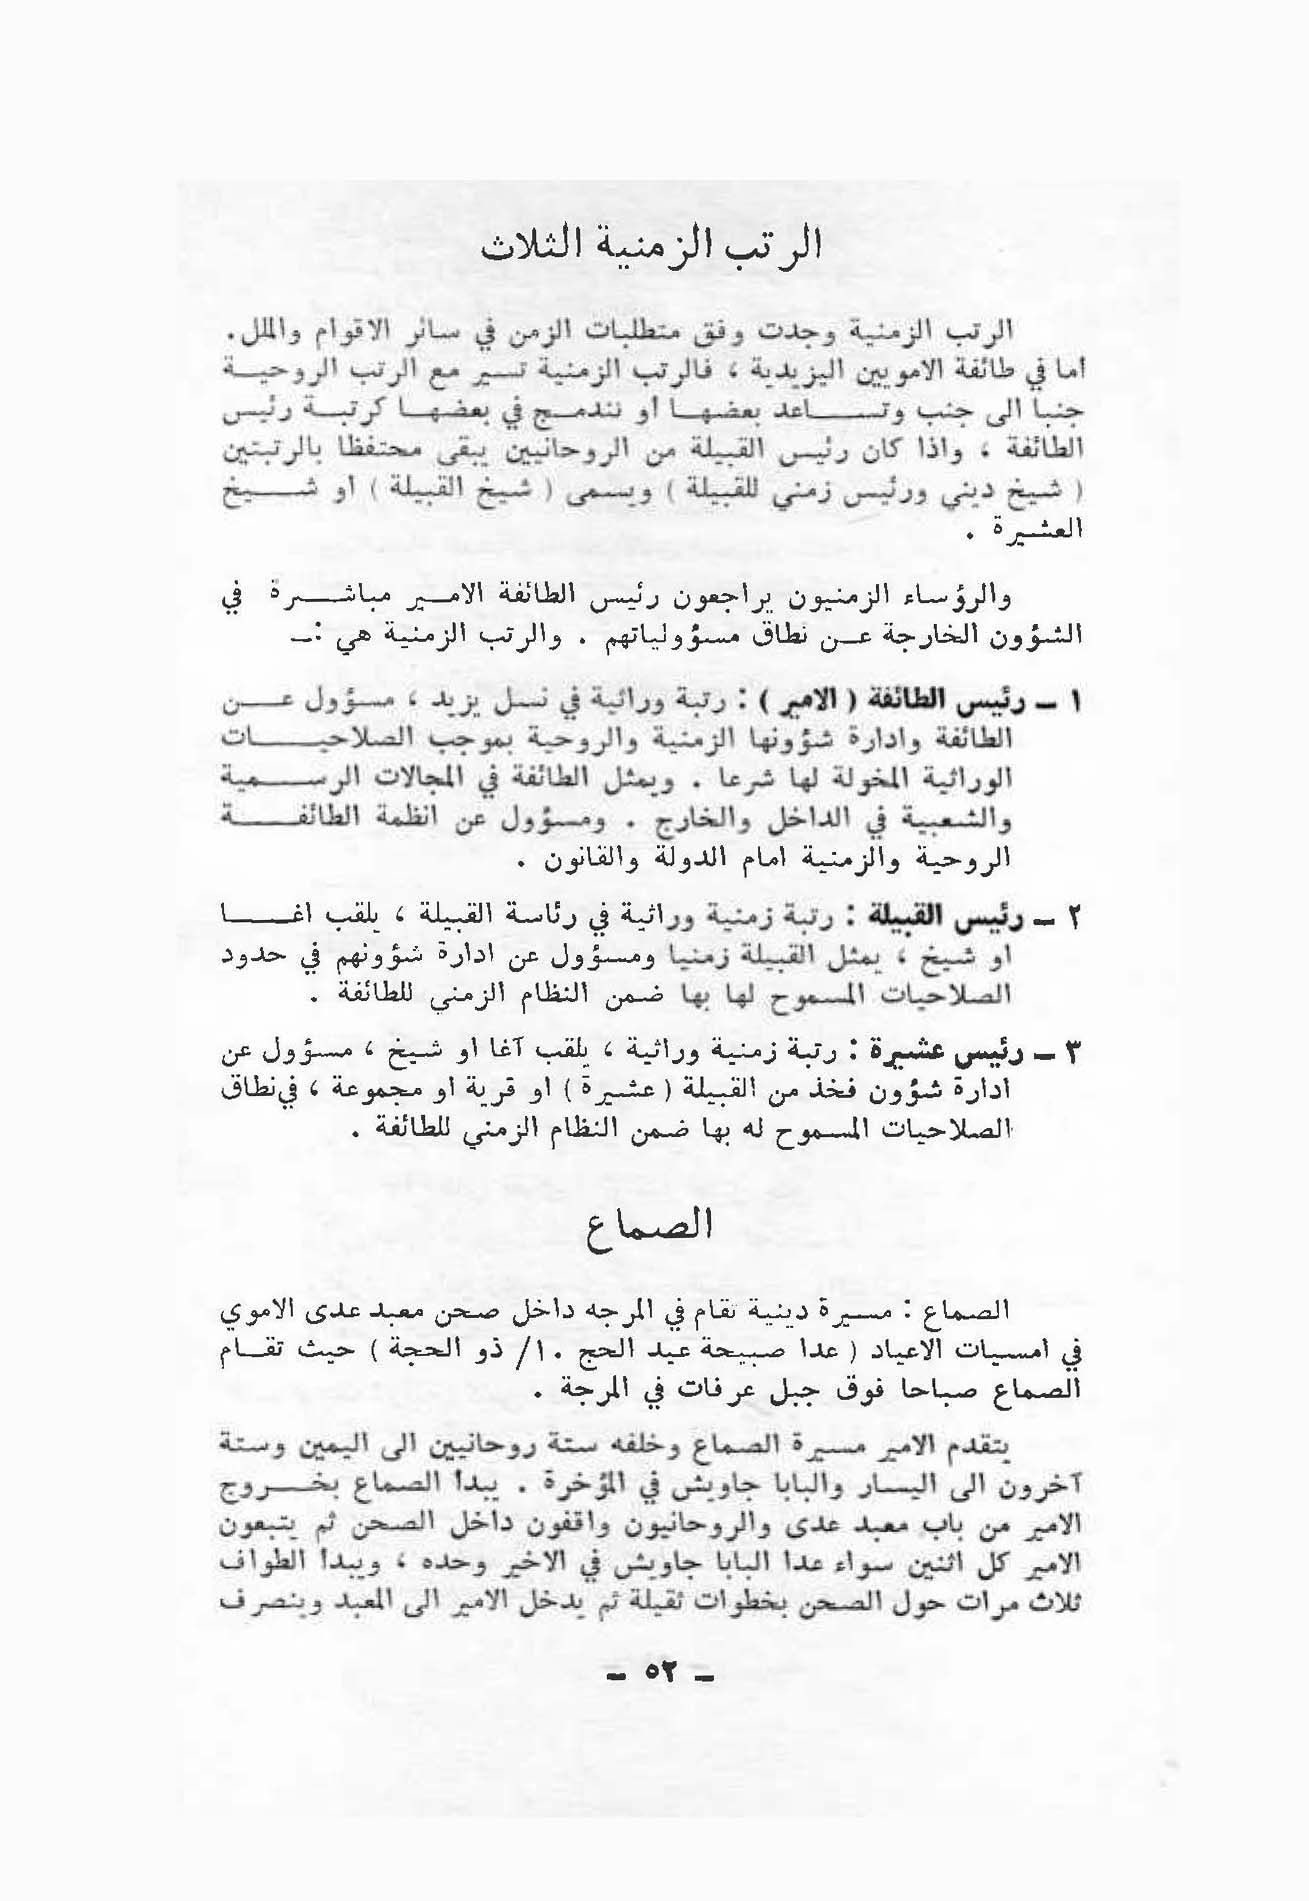 الرتب الزمنية الثلاث
الرتب الزمنية وجدت وفق متطلبات الزمن في سائر الاقوام والملل .
أما في طائفة الامويين اليزيدية ، فالرتب الزمنية تسير مع الرتب الروحية
جنبا الى جنب وتساعد بعضها أو تندمج في بعضها كرتبة رئيس
الطائفة ، واذا كان رئيس القبيلة من الروحانيين يبقى محتفظا بالرتبتين
( شيخ ديني ورئيس زمني للقبيلة ) ويسمى ( شيخ القبيلة ) أو شيخ
العشيرة .
والرؤساء الزمنيون يراجعون رئيس الطائفة الامير مباشرة في
الشؤون الخارجة عن نطاق مسؤولياتهم . والرتب الزمنية هي :ـ
١ ـ رئيس الطائفة ( الامير ) : رتبة وراثية في نسل يزيد ، مسؤول عن
الطائفة وادارة شؤونها الزمنية والروحية بموجب الصلاحيات
الوراثية المخولة لها شرعا . ويمثل الطائفة في المجالات الرسمية
والشعبية في الداخل والخارج . ومسؤول عن انظمة الطائفة
الروحية والزمنية امام الدولة والقانون .
٢ ـ رئيس القبيلة : رتبة زمنية وراثية في رئاسة القبيلة ، يلقب اغا
او شيخ ، يمثل القبيلة زمنيا ومسؤول عن ادارة شؤونهم في حدود
الصلاحيات المسموح لها بها ضمن النظام الزمني للطائفة .
٣ ـ رئيس عشيرة : رتبة زمنية وراثية ، يلقب آغا او شيخ ، مسؤول عن
ادارة شؤون فخذ من القبيلة ( عشيرة ) او قرية او مجموعة ، في نطاق
الصلاحيات المسموح له بها ضمن النظام الزمني للطائفة .
الصماع
الصماع : مسيرة دينية تقام في المرجه داخل صحن معبد عدى الاموي
في امسيات الاعياد ( عدا صبيحة عيد الحج ١٠/ ذو الحجة ) حيث تقام
الصماع صباحا فوق جبل عرفات في المرجة .
يتقدم الامير مسيرة الصماع وخلفه ستة روحانيين الى اليمين وستة
آخرون الى اليسار والبابا جاويش في المؤخرة . يبدأ الصماع بخروج
الامير من باب معبد عدى والروحانيون واقفون داخل الصحن ثم يتبعون
الامير كل اثنين سواء عدا البابا جاويش في الاخير وحده ، ويبدأ الطواف
ثلاث مرات حول الصحن بخطوات ثقيلة ثم يدخل الامير الى المعبد وينصرف
ـ ٥٢ ـ